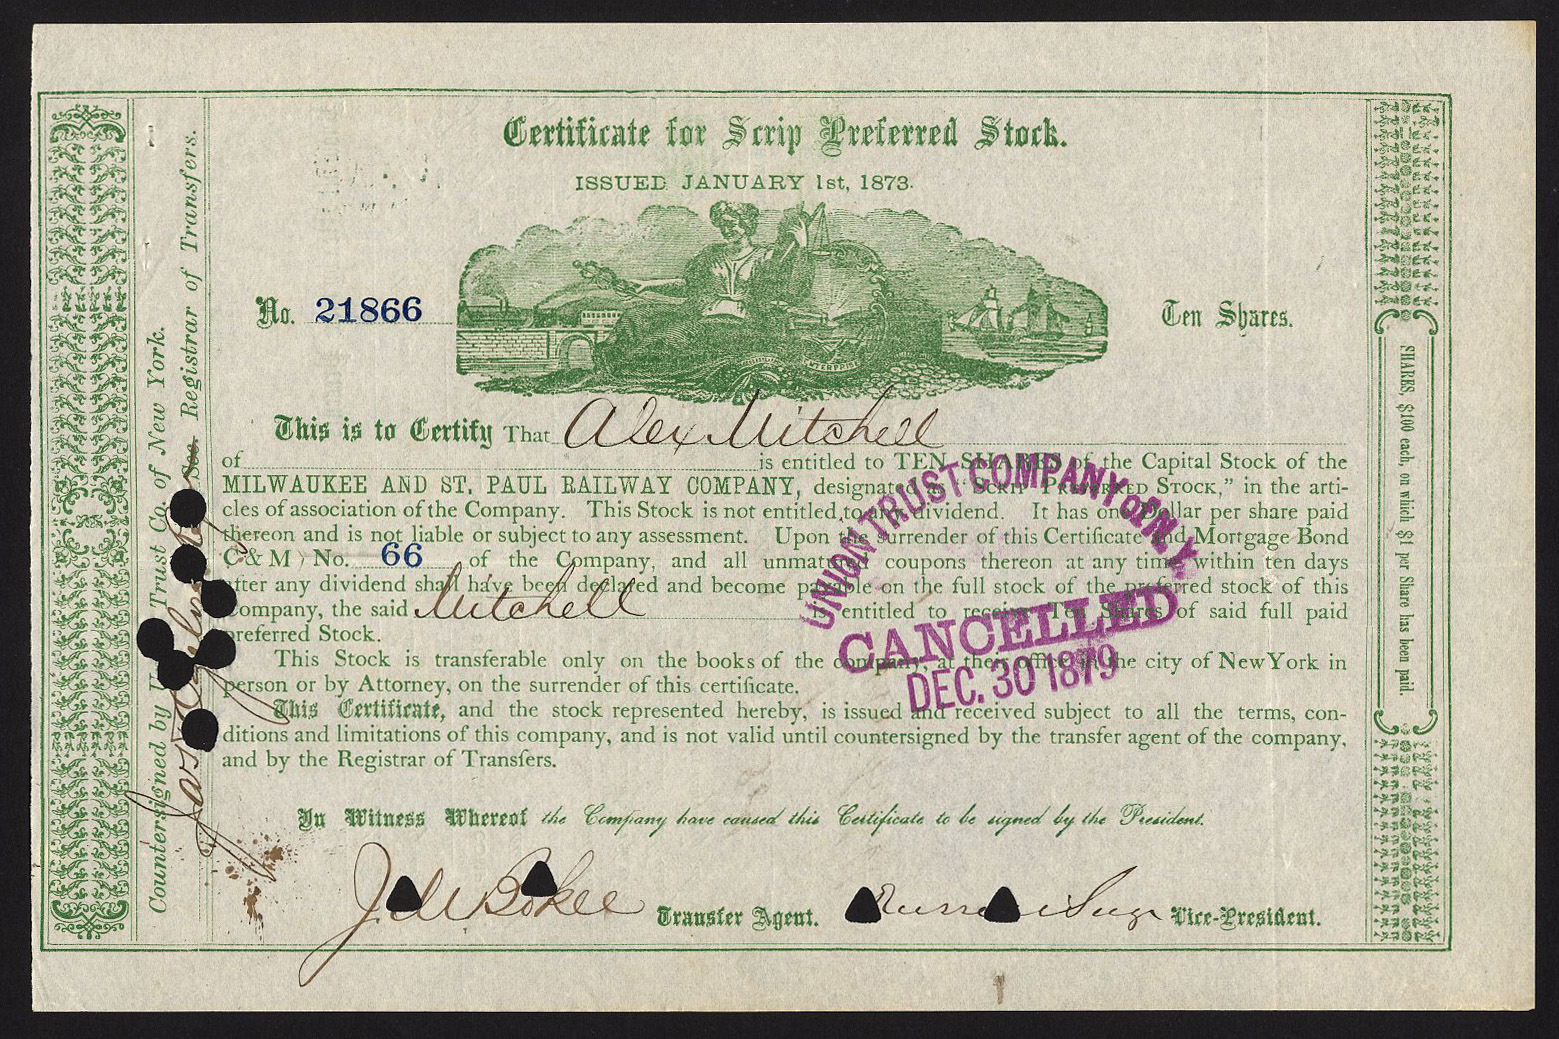 Certificate for Scrip Preferred Stock.
ISSUED JANUARY 1st, 1873.
No. 21866
Ten Shares.
This is to Certify That Alex Mitchell
of is entitled to TEN SHARES of the Capital Stock of the
MILWAUKEE AND ST. PAUL RAILWAY COMPANY, designated "SCRIP PREFERRED STOCK," in the arti-
cles of association of the Company. This Stock is not entitled to any dividend. It has one Dollar per share paid
thereon and is not liable or subject to any assessment. Upon the surrender of this Certificate and Mortgage Bond
C & M ) No. 66 of the Company, and all unmatured coupons thereon at any time within ten days
after any dividend shall have been declared and become payable on the full stock of the preferred stock of this
Company, the said Mitchell is entitled to receive Ten Shares of said full paid
preferred Stock.
This Stock is transferable only on the books of the company, at their office in the city of New York in
person or by Attorney, on the surrender of this certificate.
This Certificate, and the stock represented hereby, is issued and received subject to all the terms, con-
ditions and limitations of this company, and is not valid until countersigned by the transfer agent of the company,
and by the Registrar of Transfers.
In Witness Whereof the Company have caused this Certificate to be signed by the President.
Transfer Agent.
Russell Sage Vice-President.
UNION TRUST COMPANY OF N.Y.
CANCELLED
DEC. 30 1879
Countersigned by Trust Co. of New York.
Registrar of Transfers.
SHARES, $100 each, on which $1 per Share has been paid.